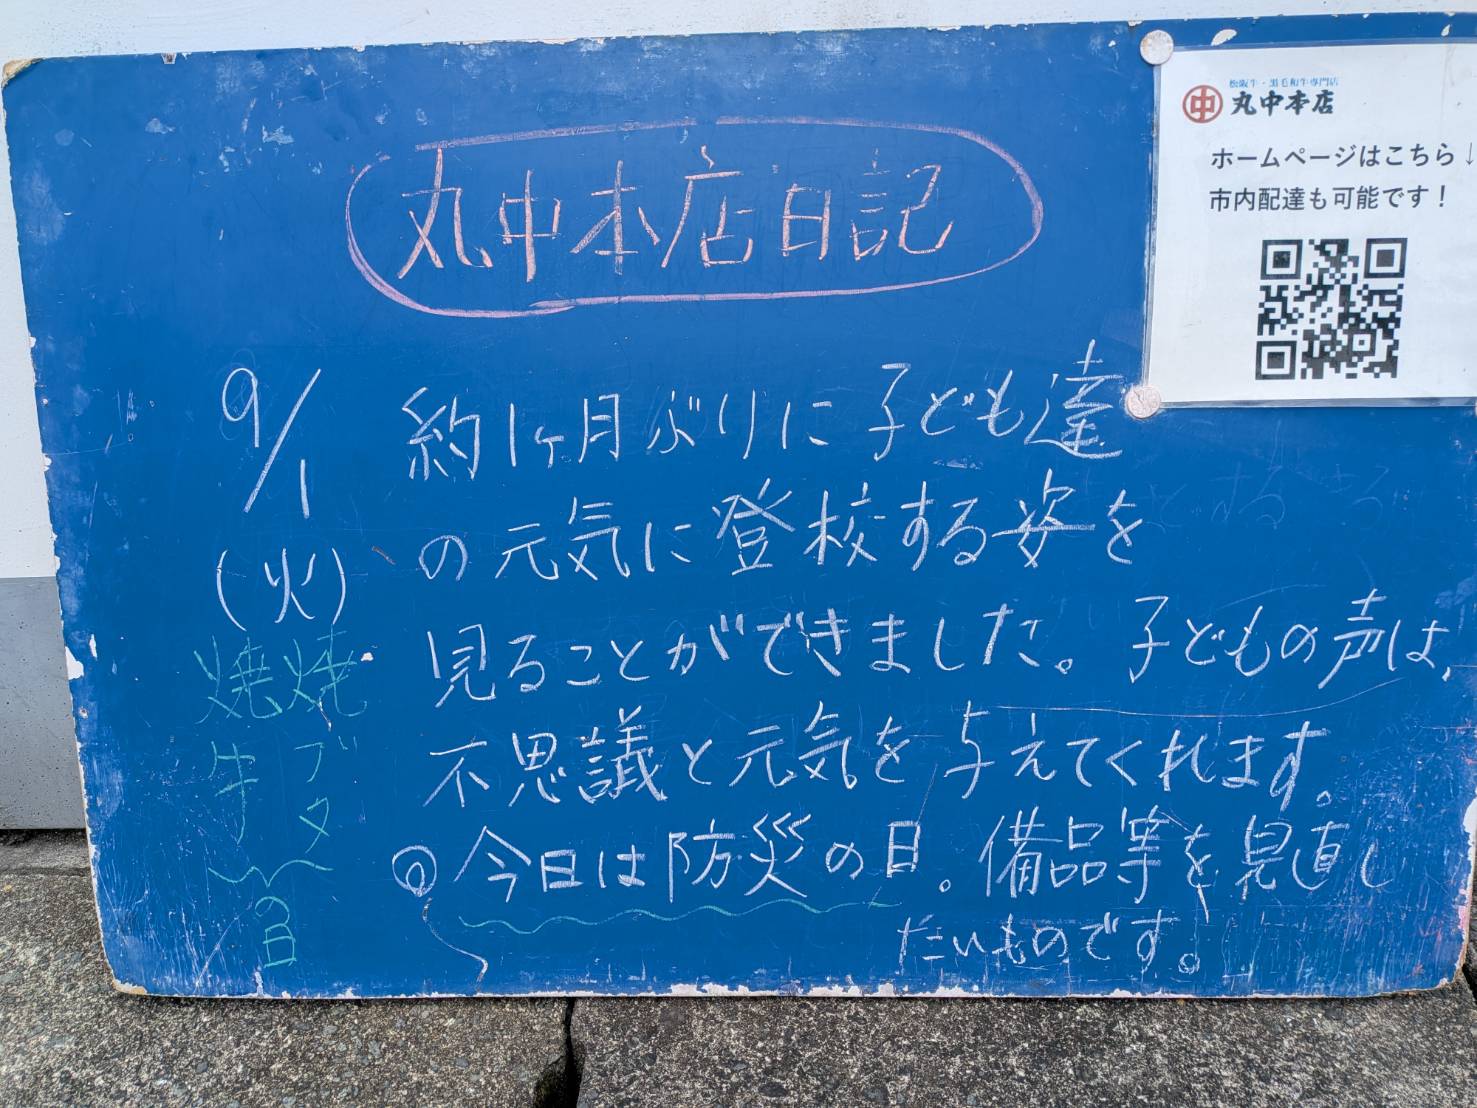 丸中本店日記
松阪牛・黒毛和牛専門店
丸中本店
ホームページはこちら↓
市内配達も可能です！
9/1
(火)
焼ブタ
焼牛
の日
約1ヶ月ぶりに子ども達
の元気に登校する姿を
見ることができました。子どもの声は、
不思議と元気を与えてくれます。
今日は防災の日。備品等を見直し
たいものです。